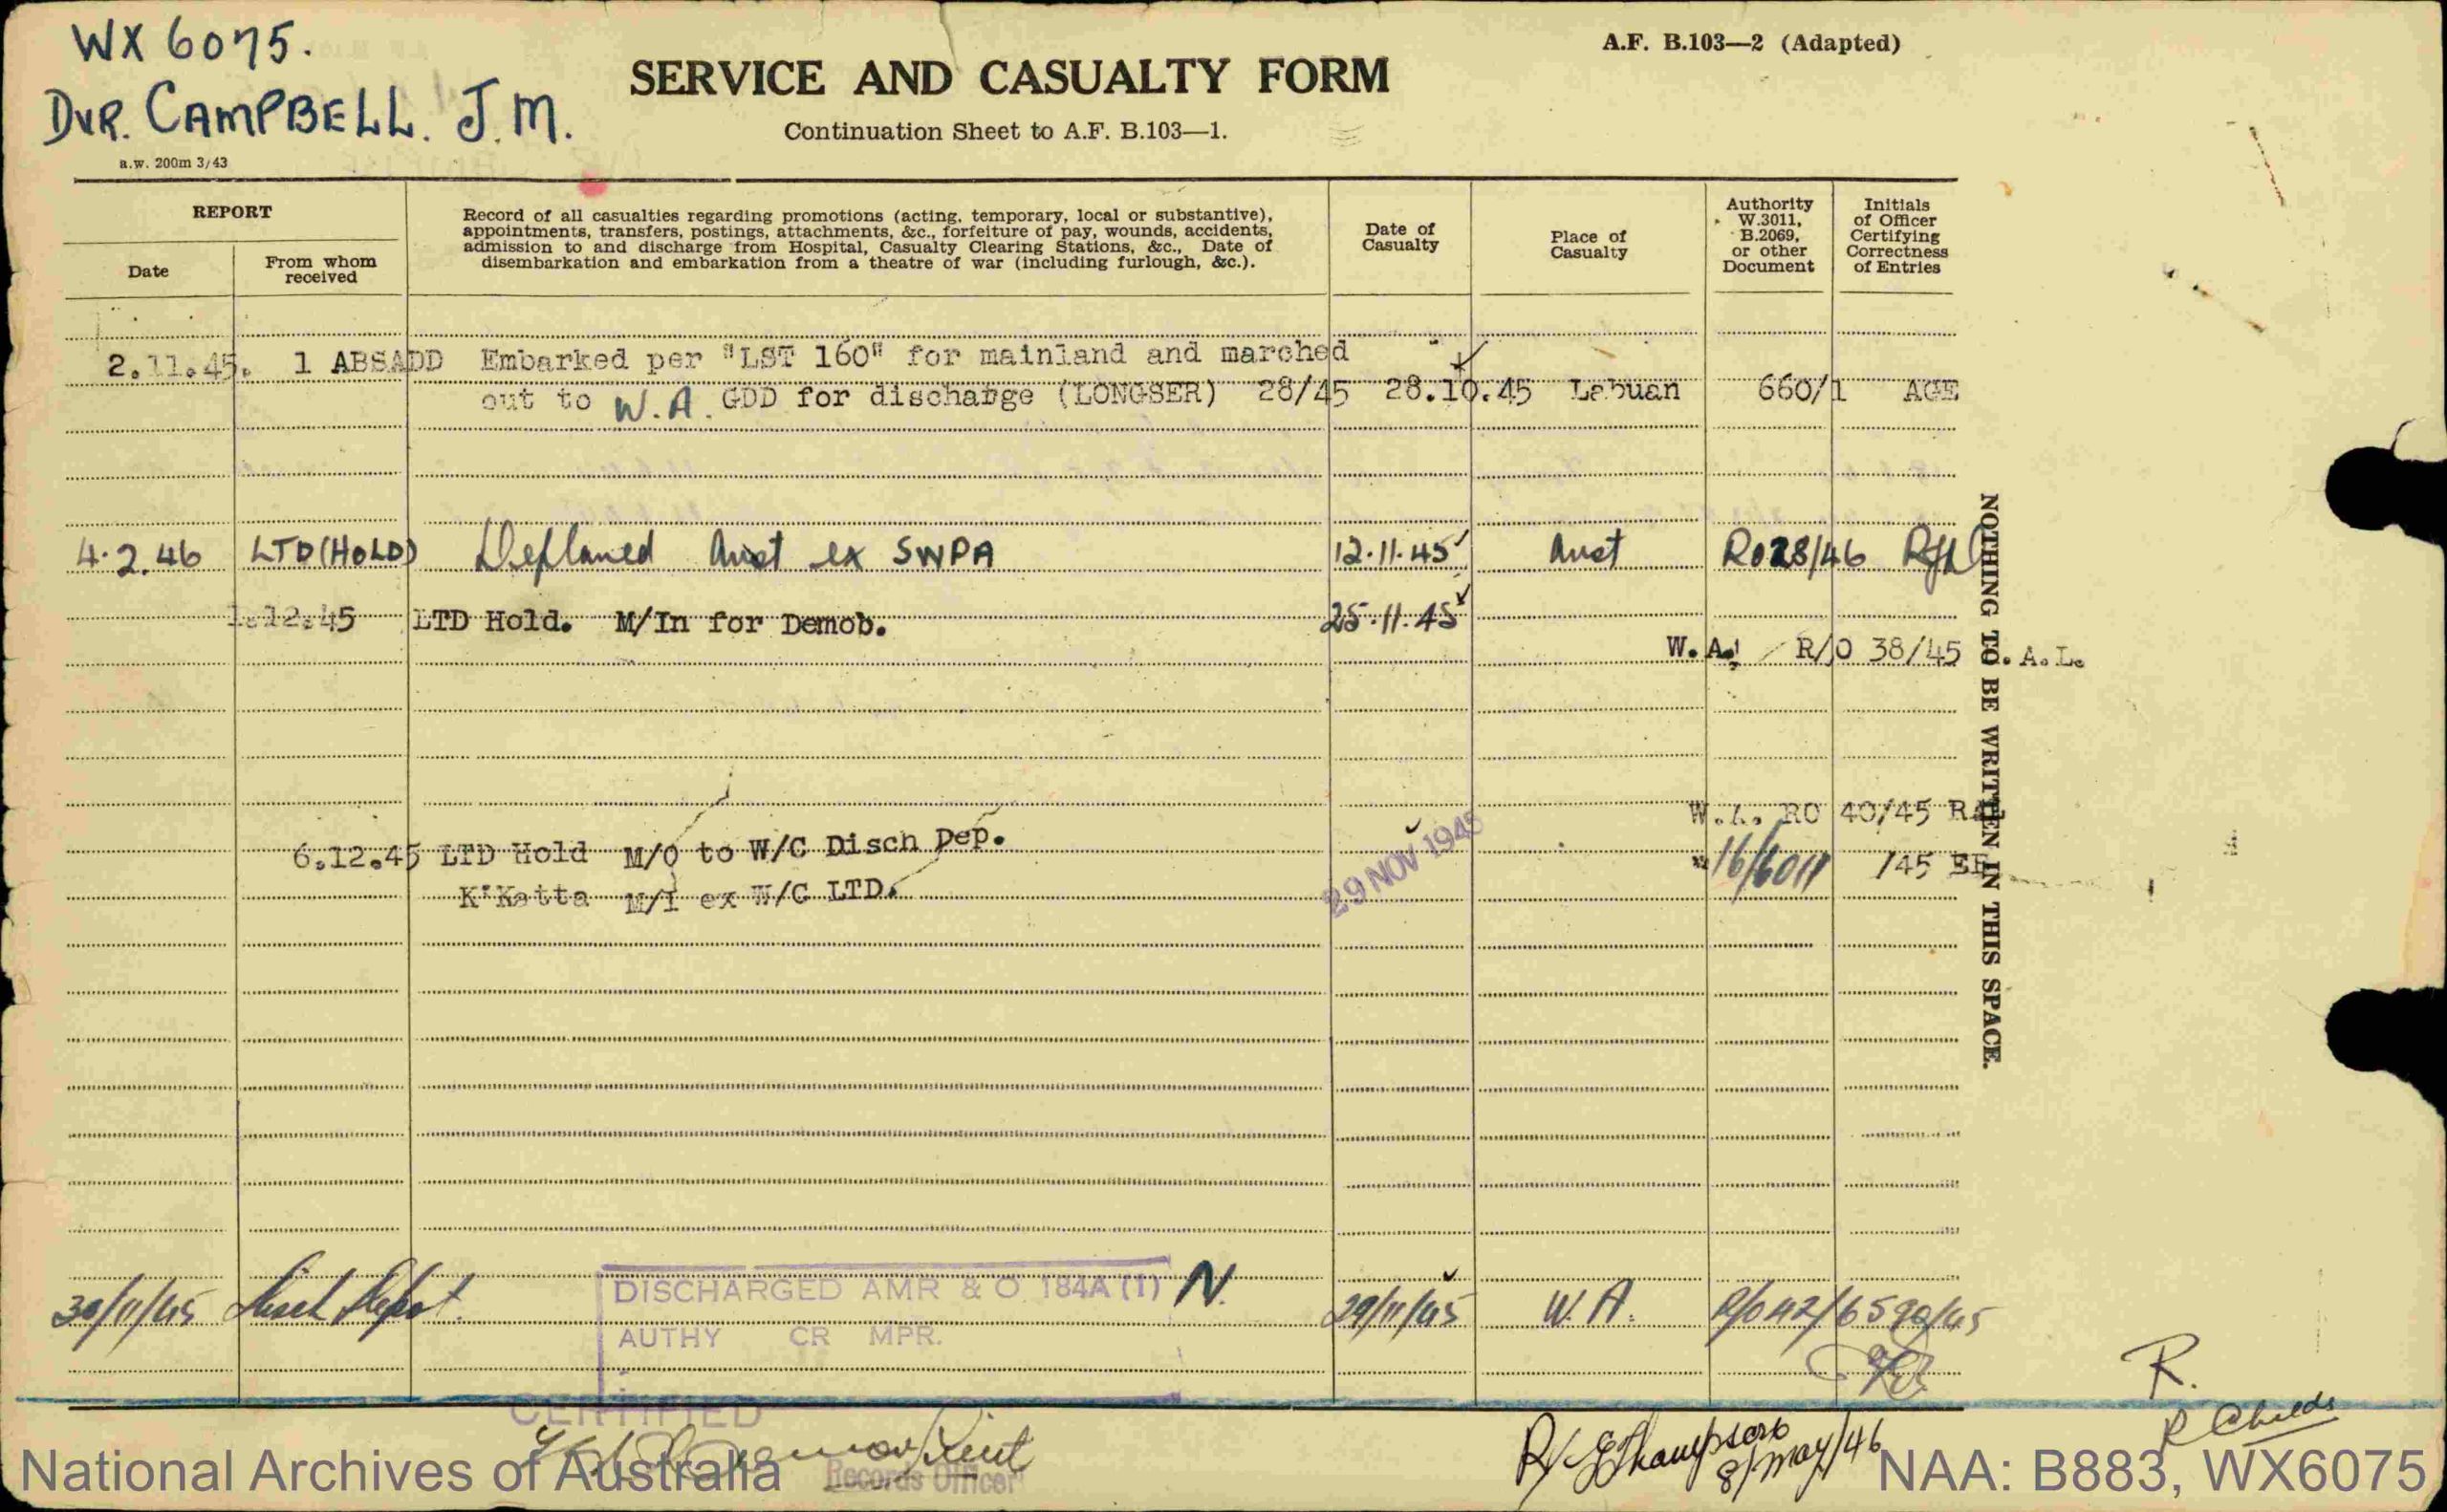 WX 6075.
DVR. CAMPBELL. J.M.
a.w. 200m 3/43
SERVICE AND CASUALTY FORM
Continuation Sheet to A.F. B.103—1.
A.F. B.103—2 (Adapted)
REPORT
Date
From whom
received
Record of all casualties regarding promotions (acting, temporary, local or substantive),
appointments, transfers, postings, attachments, &c., forfeiture of pay, wounds, accidents,
admission to and discharge from Hospital, Casualty Clearing Stations, &c., Date of
disembarkation and embarkation from a theatre of war (including furlough, &c.).
Date of
Casualty
Place of
Casualty
Authority
W.3011,
B.2069,
or other
Document
Initials
of Officer
Certifying
Correctness
of Entries
2.11.45. 1 ABSADD Embarked per "LST 160" for mainland and marched
out to W.A. GDD for discharge (LONGSER) 28/45 28.10.45 Labuan 660/1 AGE
4.2.46 LTD(HOLD) Deplaned Aust ex SWPA 12.11.45 Aust RO28/46
1.12.45 LTD Hold. M/In for Demob. 25.11.45
W.A. R/O 38/45 . A.L.
W.A. RO 40/45
6.12.45 LTD Hold M/O to W/C Disch Dep. 29 NOV 1945
16/6011 /45
K'Katta M/I ex W/C LTD.
NOTHING TO BE WRITTEN IN THIS SPACE.
30/11/45 Disch Depot. DISCHARGED AMR & O 184A (1) N. 29/11/45 W.A. R/O 42/6590/45
AUTHY CR MPR.
CERTIFIED
Lieut
Records Officer
Thompson
8/May/46
R.
R Childs
National Archives of Australia
NAA: B883, WX6075